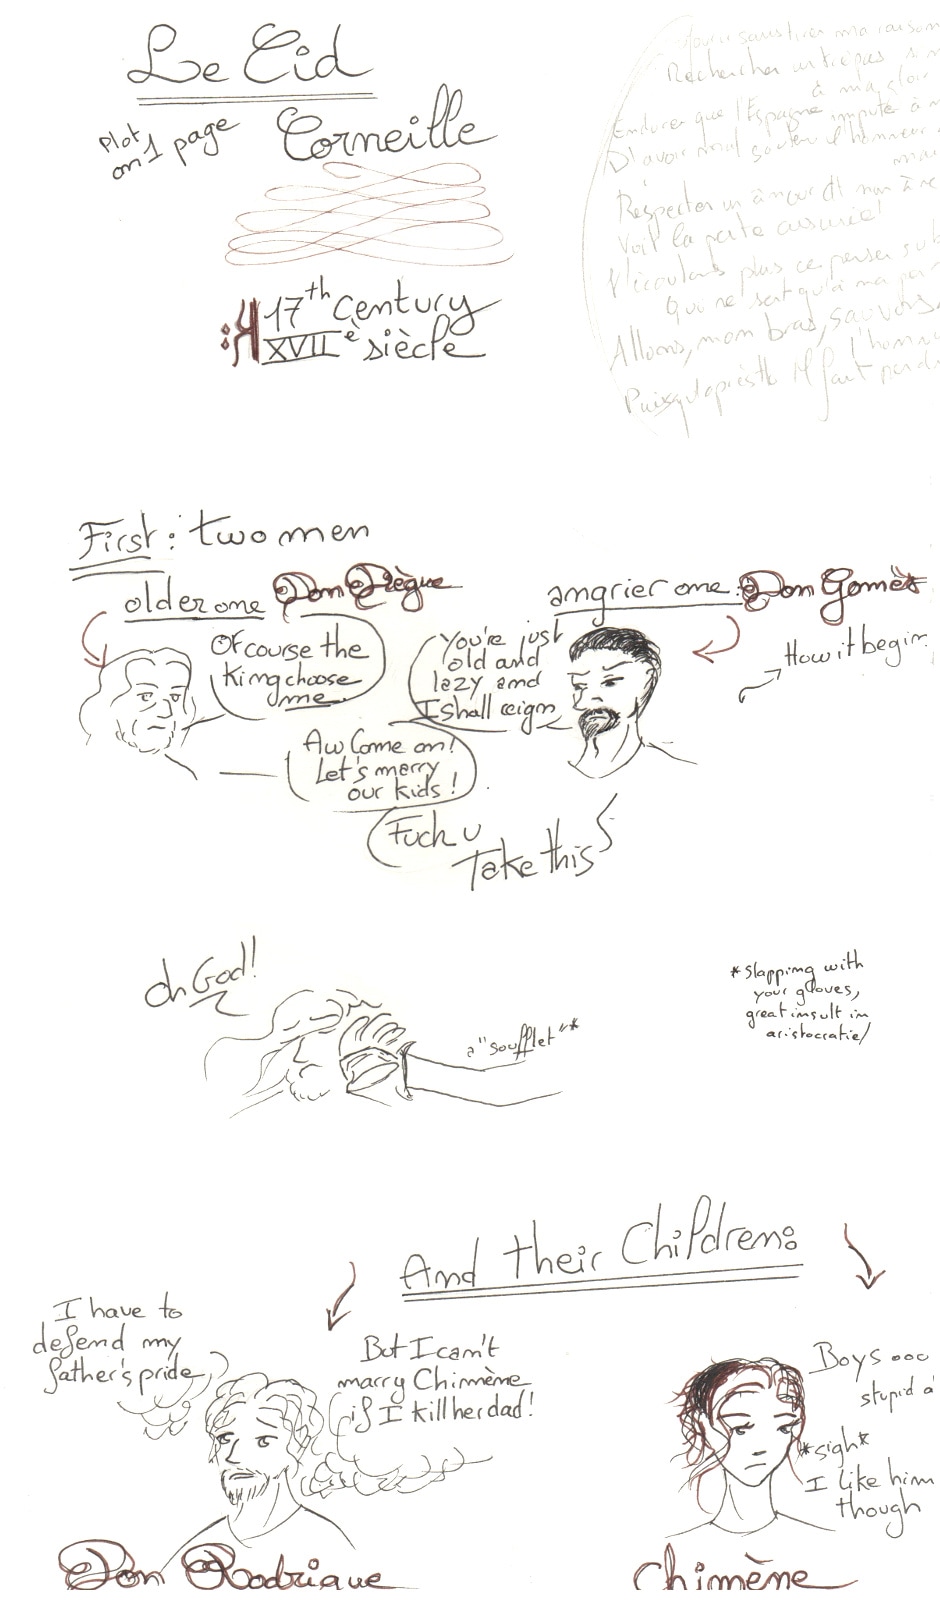 Le Cid
Plot
on 1 page
Corneille
17th century
XVIIè siècle
Mourir sans tirer ma raison
Rechercher un trépas si
à ma gloir
Endurer que l'Espagne impute à m
D'avoir mal soutenu l'honneur
mai
Respecter un amour dt mon
Voit la perte assurée!
N'écoutons plus ce penser sub
Qui ne sert qu'à ma
Allons, mon bras, sauvons
l'honn
Puisqu'après tt il faut perdr
First: two men
older one Don Diègue
angrier one: Don Gomès
Of course the
King choose
me.
You're just
old and
lazy and
I shall reign
How it begin
Aw Come on!
Let's merry
our kids!
Fuck u
Take this
Oh God!
a "soufflet"*
*Slapping with
your gloves,
great insult in
aristocratie/
And their Children:
I have to
defend my
father's pride
But I can't
marry Chimène
if I kill her dad!
Boys ooo
stupid a
*sigh*
I like him
though
Don Rodrigue
Chimène